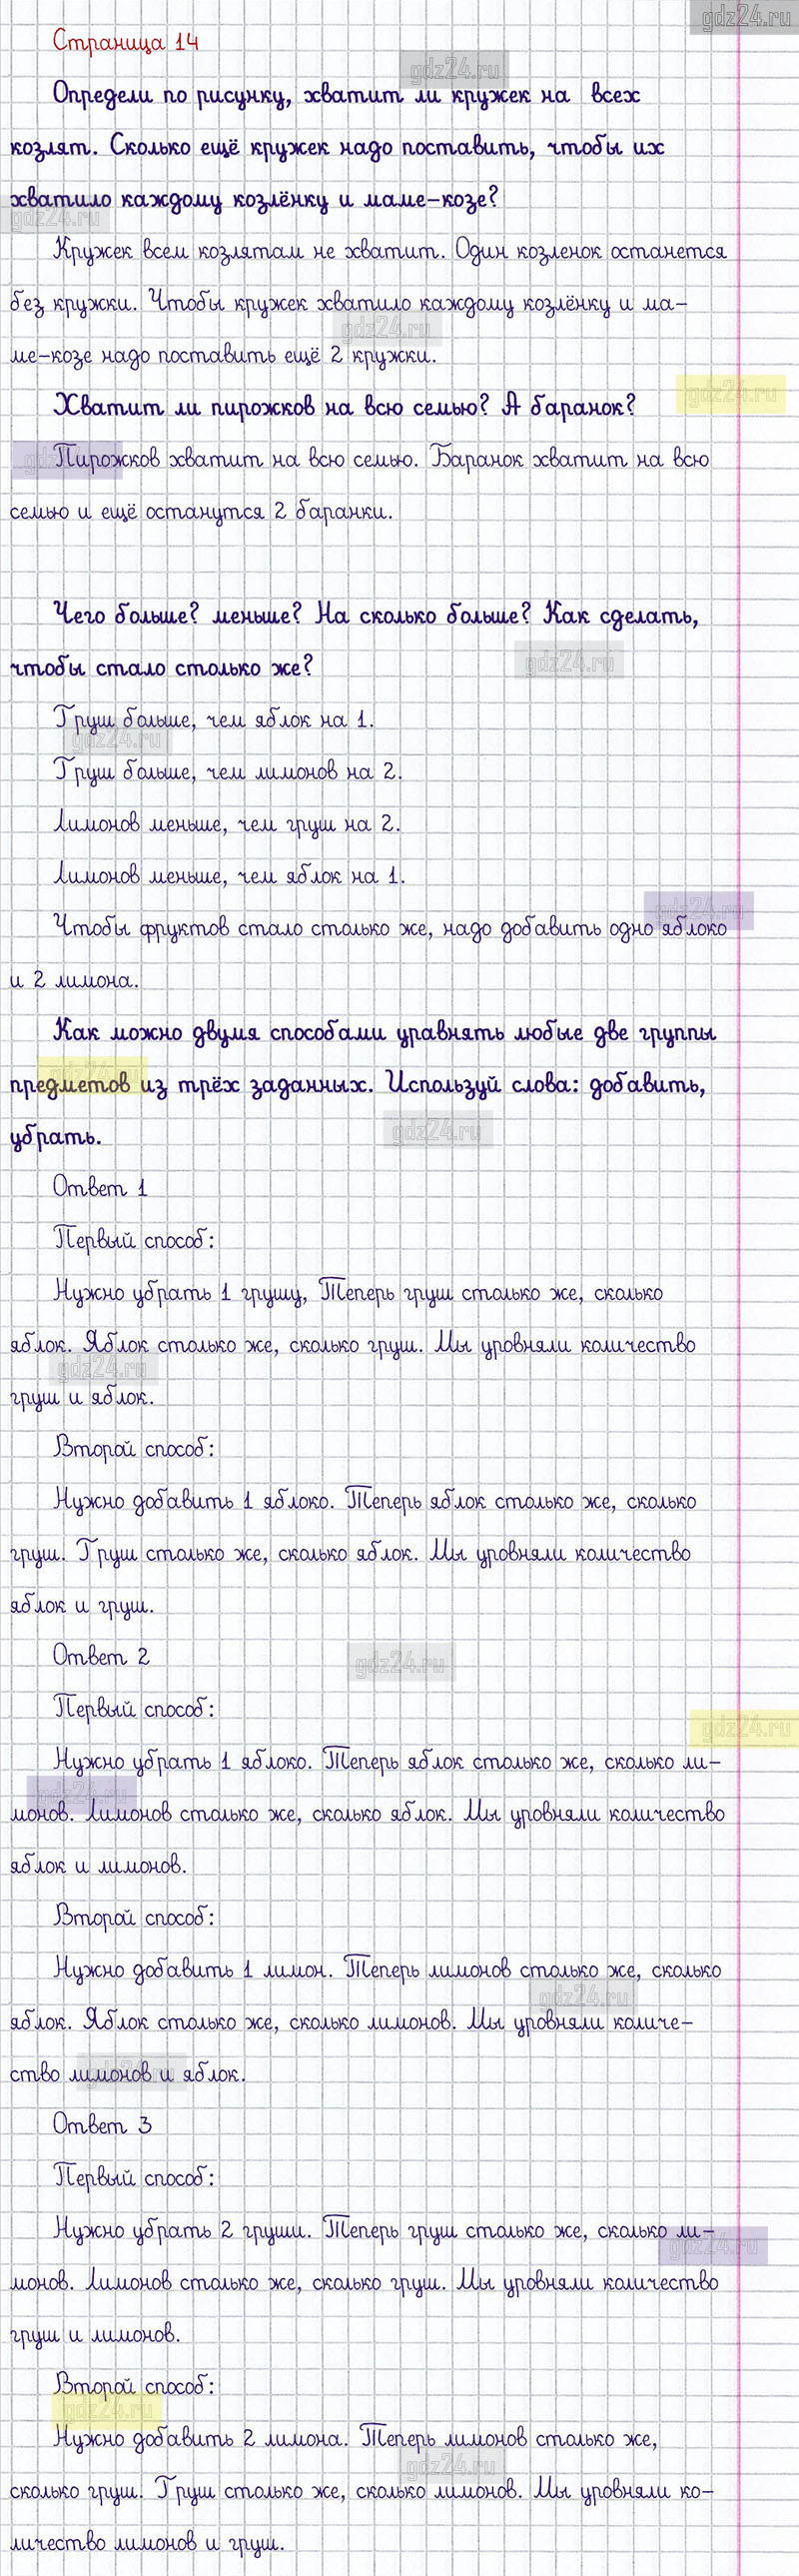 gdz24.ru
Страница 14
gdz24.ru
Определи по рисунку, хватит ли кружек на всех
козлят. Сколько ещё кружек надо поставить, чтобы их
хватило каждому козлёнку и маме-козе?
gdz24.ru
Кружек всем козлятам не хватит. Один козленок останется
без кружки. Чтобы кружек хватило каждому козлёнку и ма-
gdz24.ru
ме-козе надо поставить ещё 2 кружки.
gdz24.ru
Хватит ли пирожков на всю семью? А баранок?
gdz24.ru
Пирожков хватит на всю семью. Баранок хватит на всю
семью и ещё останутся 2 баранки.
Чего больше? меньше? На сколько больше? Как сделать,
gdz24.ru
чтобы стало столько же?
Груш больше, чем яблок на 1.
gdz24.ru
Груш больше, чем лимонов на 2.
Лимонов меньше, чем груш на 2.
Лимонов меньше, чем яблок на 1.
gdz24.ru
Чтобы фруктов стало столько же, надо добавить одно яблоко
и 2 лимона.
Как можно двумя способами уравнять любые две группы
gdz24.ru
предметов из трёх заданных. Используй слова: добавить,
gdz24.ru
убрать.
Ответ 1
Первый способ:
Нужно убрать 1 грушу, Теперь груш столько же, сколько
яблок. Яблок столько же, сколько груш. Мы уровняли количество
gdz24.ru
груш и яблок.
Второй способ:
Нужно добавить 1 яблоко. Теперь яблок столько же, сколько
груш. Груш столько же, сколько яблок. Мы уровняли количество
яблок и груш.
Ответ 2
gdz24.ru
Первый способ:
gdz24.ru
Нужно убрать 1 яблоко. Теперь яблок столько же, сколько ли-
gdz24.ru
монов. Лимонов столько же, сколько яблок. Мы уровняли количество
яблок и лимонов.
Второй способ:
Нужно добавить 1 лимон. Теперь лимонов столько же, сколько
gdz24.ru
яблок. Яблок столько же, сколько лимонов. Мы уровняли количе-
ство лимонов и яблок.
gdz24.ru
Ответ 3
Первый способ:
Нужно убрать 2 груши. Теперь груш столько же, сколько ли-
gdz24.ru
монов. Лимонов столько же, сколько груш. Мы уровняли количество
груш и лимонов.
Второй способ:
gdz24.ru
Нужно добавить 2 лимона. Теперь лимонов столько же,
gdz24.ru
сколько груш. Груш столько же, сколько лимонов. Мы уровняли ко-
личество лимонов и груш.